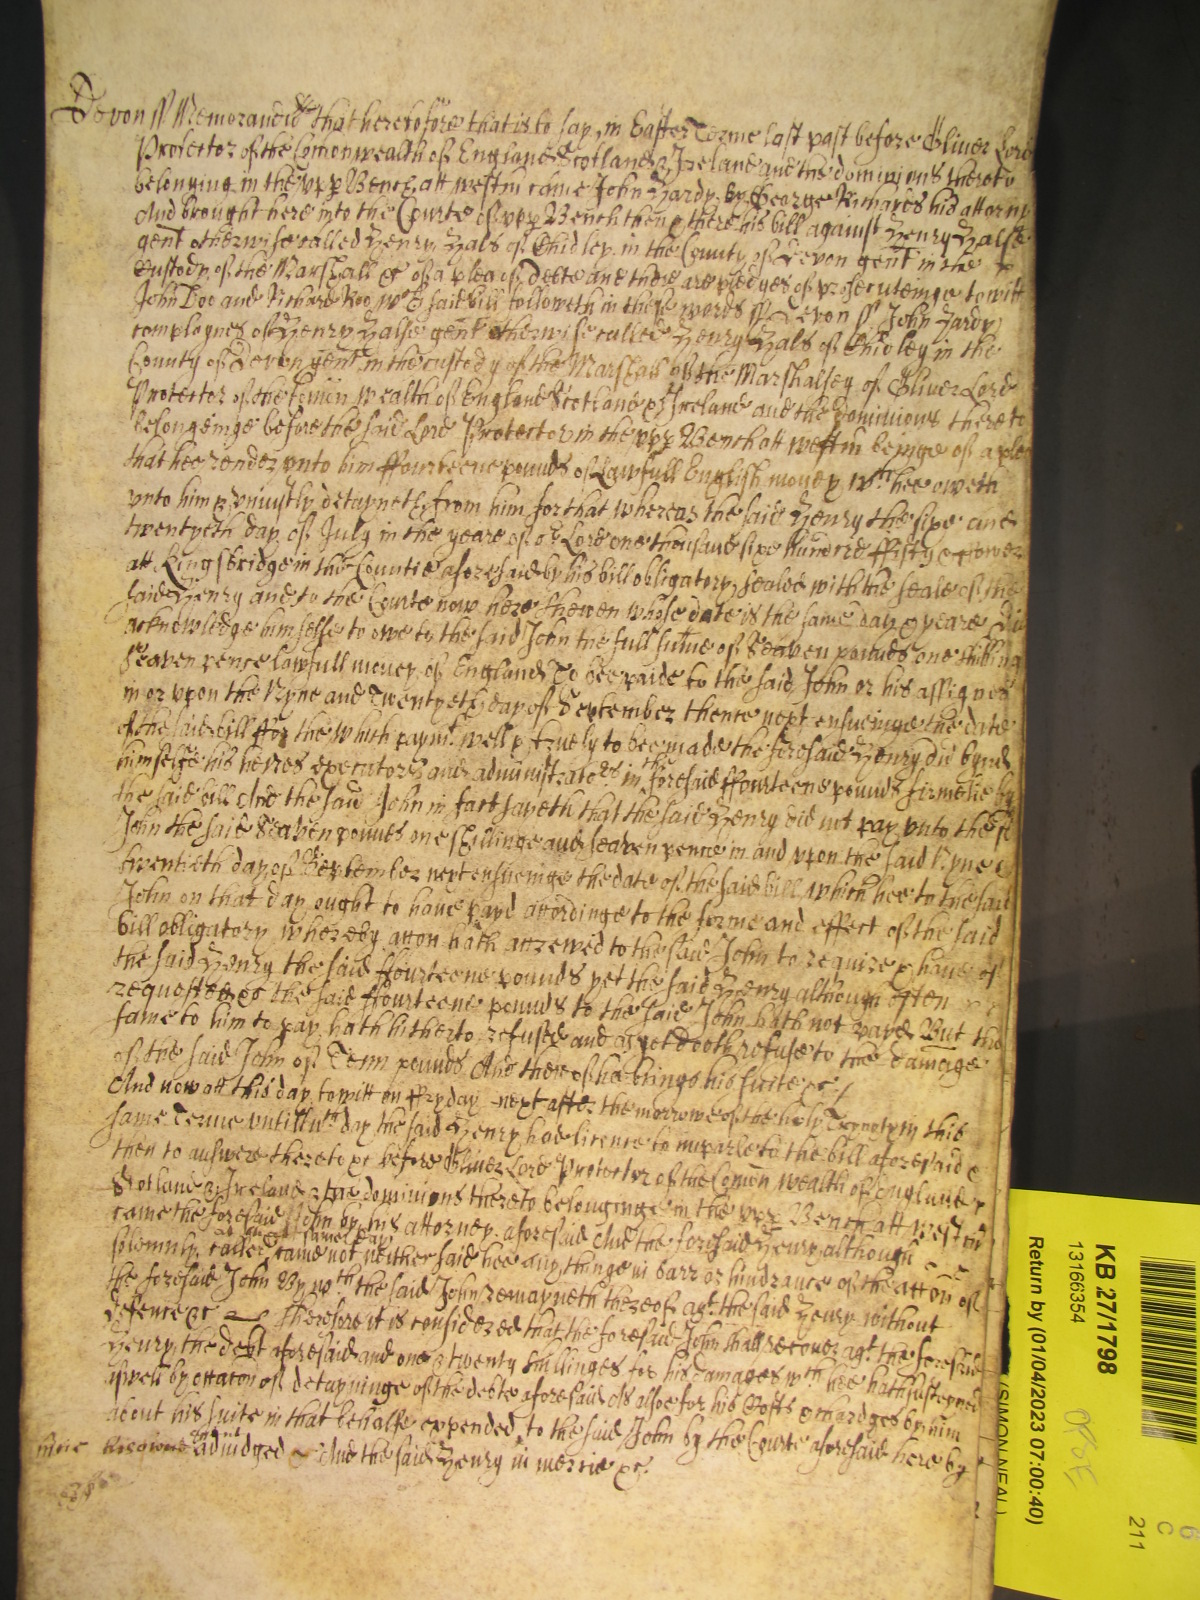 Devon ss Memorand that heretofore that is to say in Easter Terme last past before Oliver Lord
Protector of the Comonwealth of England Scotland & Ireland and the dominions thereto
belonging in the upp Bench att westm came John Hardy by George Richards his attorny
And brought here into the Courte of upp Bench then & there his bill against Henry Halse
gent otherwise called Henry Hals of Chidley in the County of Devon gent in the
Custody of the Marshall &c of a plea of Debte and there are pledges of prosecuteinge towitt
John Doe and Richard Roo wch said bill followeth in these words ss Devon ss John Hardy
complaynes of Henry Halse gent otherwise called Henry Hals of Chidley in the
County of Devon gent in the custody of the Marshall of the Marshalsey of Oliver Lord
Protector of the Comon wealth of England Scotland & Ireland and the dominions thereto
belongeinge before the said Lord Protector in the upp Bench att westm beinge of a plea
that hee render unto him ffourteene pounds of Lawfull English money wch hee oweth
unto him & uniustly detayneth from him for that whereas the said Henry the sixe and
twentyeth day of July in the yeare of or Lord one thousand sixe hundred ffifty & fower
att Kingsbridge in the Countie aforesaid by his bill obligatory sealed with the seale of the
said Henry and to the Courte now here shewen whose date is the same day & yeare did
acknowledge himselfe to owe to the said John the full sume of Seaven pounds one shilling
Seaven pence lawfull money of England To bee paide to the said John or his assignes
in or upon the Nyne and Twentyeth day of September thence next ensueinge the date
of the said bill ffor the which paymt well & truely to bee made the foresaid Henry did bynd
himselfe his heires executors and administrators in the foresaid ffourteene pounds firmelie by
the said bill And the said John in fact sayeth that the said Henry did not pay unto the sd
John the said Seaven pounds one shillinge and seaven pence in and upon the said Nyne &
twentieth day of September next ensueinge the date of the said bill which hee to the said
John on that day ought to have payd accordinge to the forme and effect of the said
bill obligatory whereby accon hath accrewed to the said John to require & have of
the said Henry the said ffourteene pounds yet the said Henry although often
requested the said ffourteene pounds to the said John hath not payd But the
same to him to pay hath hitherto refused and as yet dooth refuse to the damage
of the said John of Tenn pounds And thereof hee brings his suite &c
And now att this day towitt on ffryday next after the morrowe of the holy Trynyty in this
same Terme untill wch day the said Henry had licence to imparle to the bill aforesaid &
then to answere thereto &c before Oliver Lord Protector of the Comon wealth of England
Scotland & Ireland & the dominions thereto belonginge in the upp Bench att westm
came the foresaid John by his attorney aforesaid And the foresaid Henry although
att the same day
solemnly called came not neither said hee any thinge in barr or hindrance of the accon of
the foresaid John By wch the said John remayneth thereof agt the said Henry without
defence &c Therefore it is considered that the foresaid John shall recover agt the foresaid
Henry the debt aforesaid and one & twenty shillinges for his damages wch hee hath susteyned
aswell by occacon of detayninge of the debte aforesaid As alsoe for his Costs & chardges by him
about his suite in that behalfe expended to the said John by the Courte aforesaid here by
adiudged And the said Henry in mercie &c
mcie
KB 27/1798
13166354
Return by (01/04/2023 07:00:40)
(SIMON NEAL)
6
C
211